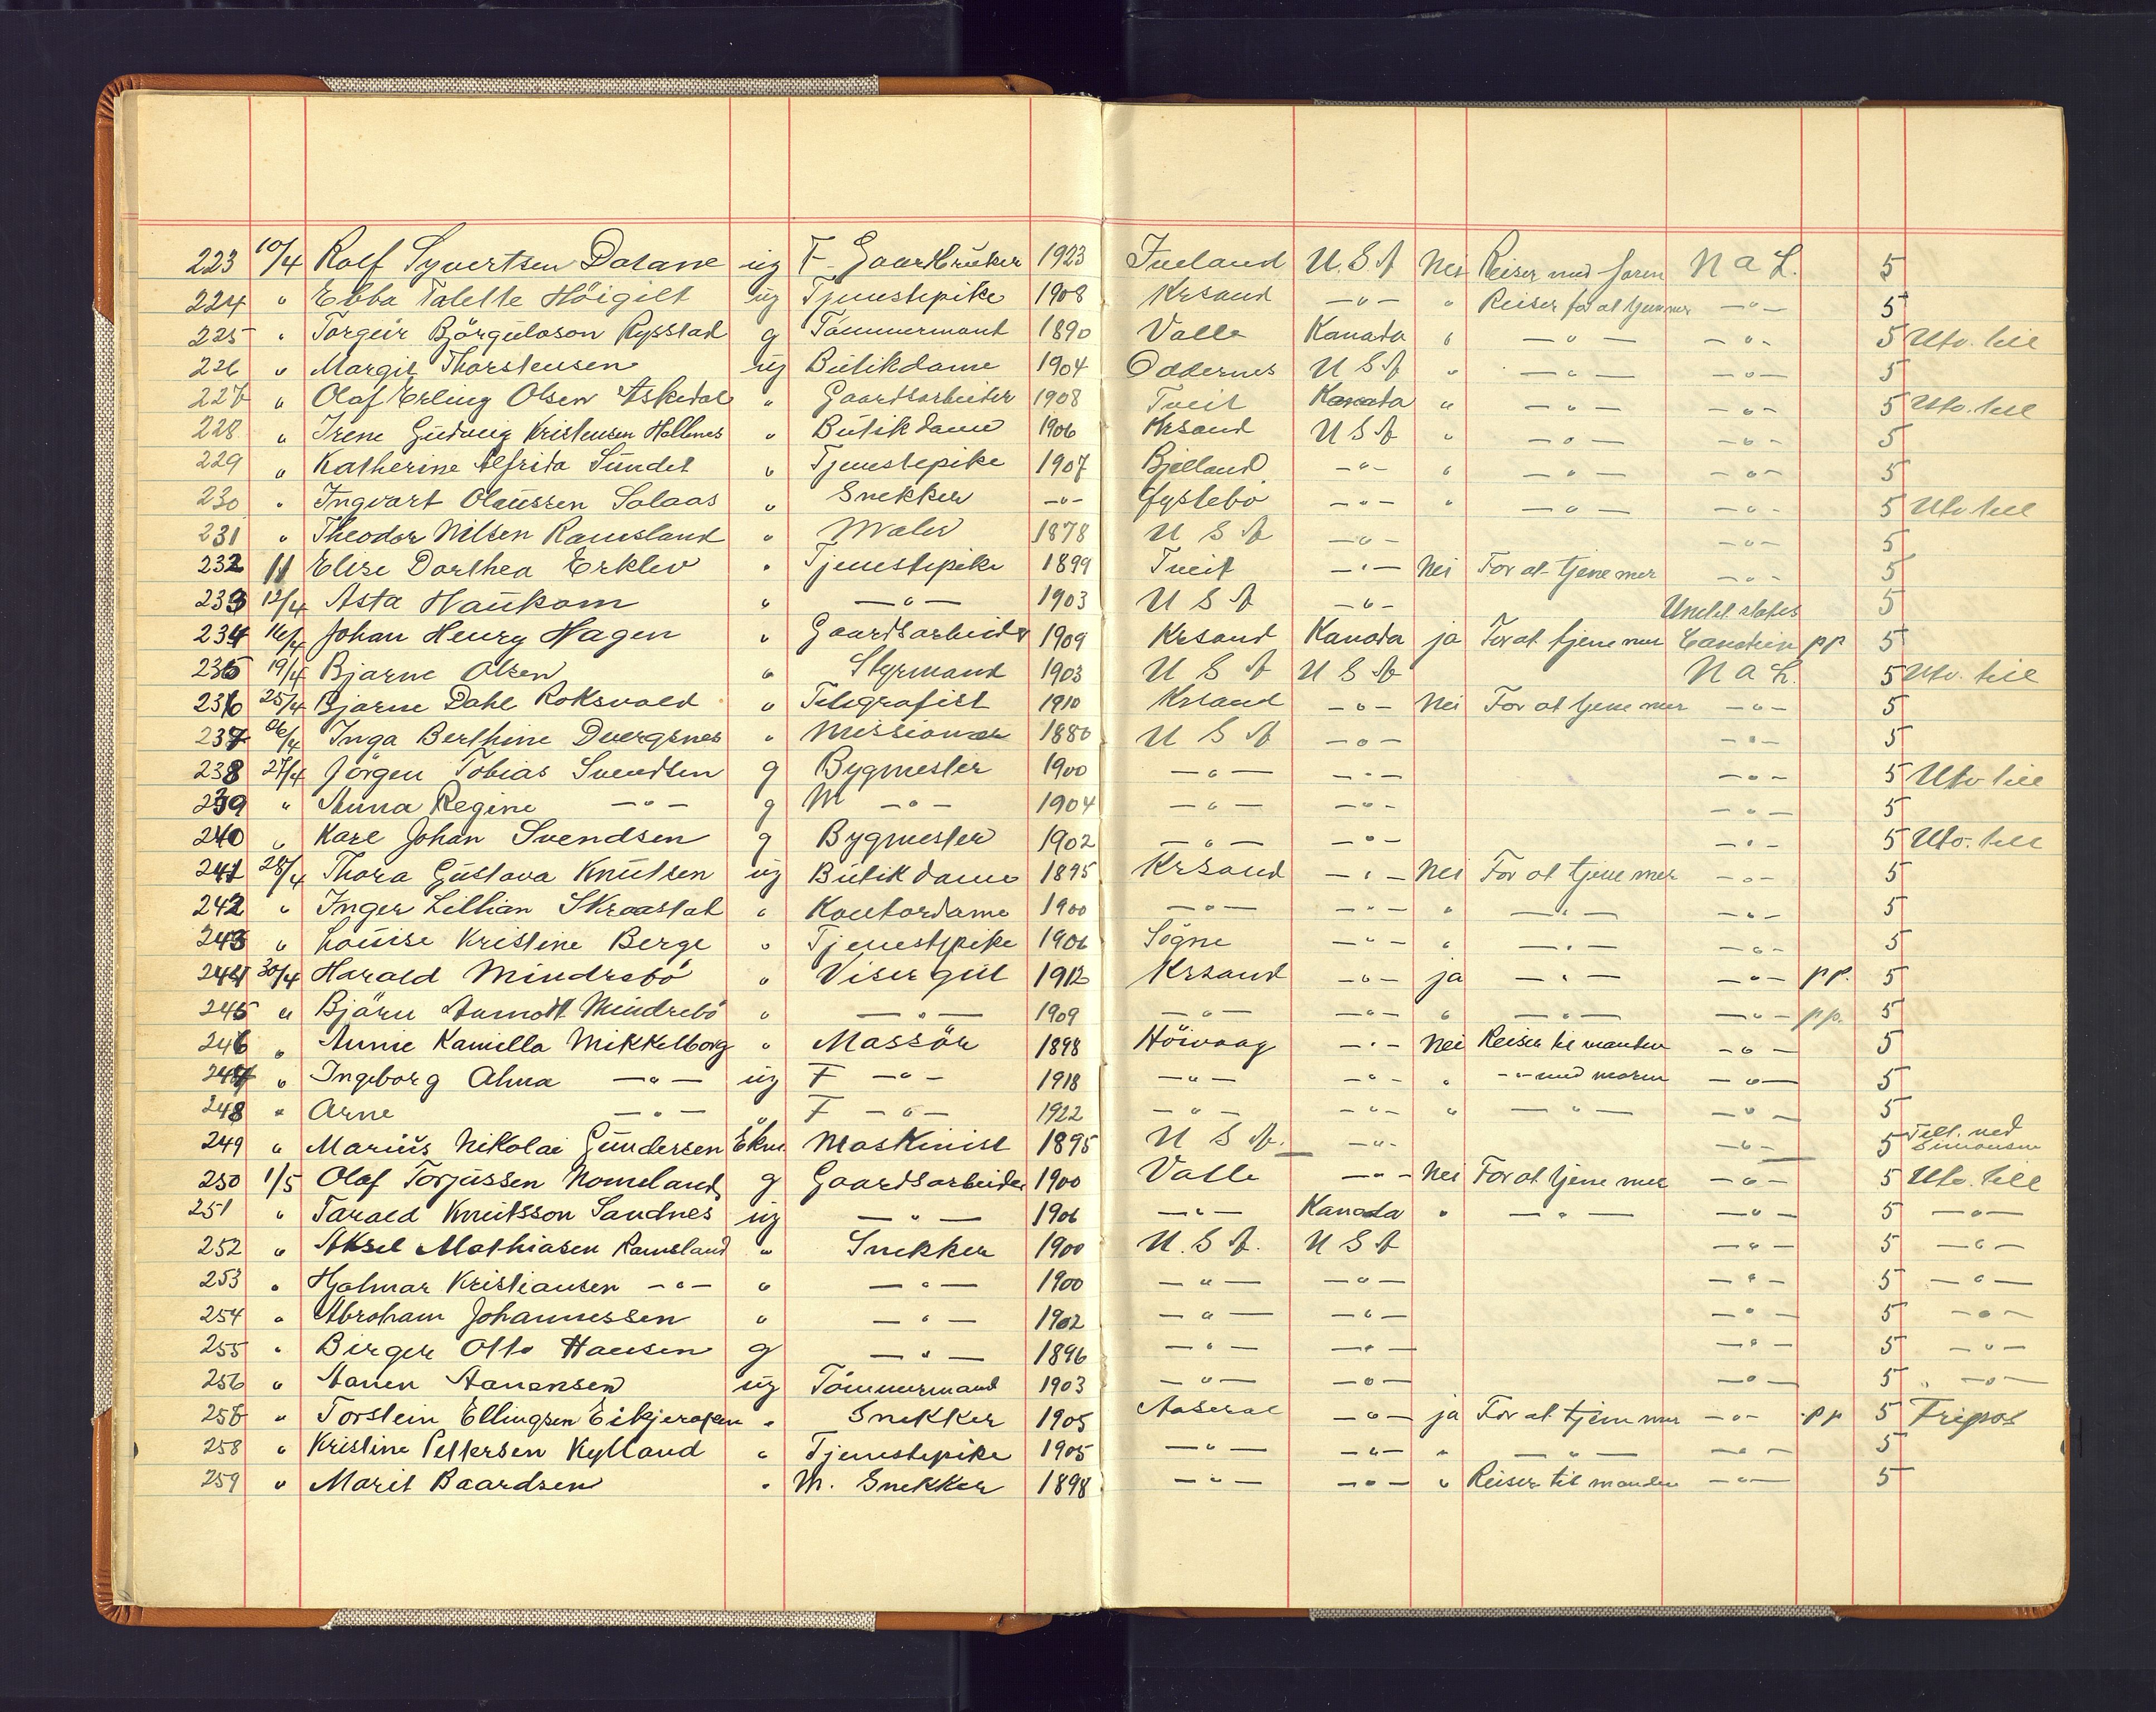 223 10/4 Rolf Syvertsen Dalane ug F. Gaardbruker 1923 Iveland U.S.A Nei Reiser med faren N a L. 5
224 " Ebba Talette Höigilt ug Tjenestepike 1908 Krsand —"— " Reiser for at tjene mer —"— 5
225 " Torgeir Björgulvson Rysstad g Tömmermand 1890 Valle Kanada " —"— —"— 5 Utv. till
226 " Margit Thorstensen ug Butikdame 1904 Oddernes U S A " —"— —"— 5
227 " Olaf Erling Olsen Askedal " Gaardsarbeider 1908 Tveit Kanada " —"— —"— 5 Utv. till
228 " Irene Gudveig Kristensen Hellenes " Butikdame 1906 Krsand U S A " —"— —"— 5
229 " Katherine Alfrida Sundet " Tjenestepike 1907 Bjelland —"— " —"— —"— 5
230 " Ingvart Olaussen Salaas " Snekker —"— Fystebö —"— " —"— —"— 5 Utv till
231 " Theodor Nilsen Ramsland " Maler 1878 U S A —"— —"— 5
232 11 Elise Dorthea Erklev " Tjenestepike 1899 Tveit —"— Nei For at tjene mer —"— 5
233 12/4 Asta Haukom " —"— 1903 U S A —"— 5
234 16/4 Johan Henry Hagen " Gaardsarbeider 1909 Krsand Kanada ja For at tjene mer United states Canadien pp 5
235 19/4 Bjarne Olsen " Styrmand 1903 U S A U S A N a L. 5 Utv. till
236 25/4 Bjarne Dahl Roksvold " Telegrafist 1910 Krsand —"— Nei For at tjene mer —"— 5
237 26/4 Inga Berthine Dvergsnes " Missionær 1880 U S A —"— —"— 5
238 27/4 Jörgen Tobias Svendsen g Bygmester 1900 —"— —"— —"— 5 Utv till
239 " Anna Regine —"— g M —"— 1904 —"— —"— —"— 5
240 " Karl Johan Svendsen g Bygmester 1902 —"— —"— —"— 5 Utv. till
241 28/4 Thora Gustava Knutsen ug Butikdame 1895 Krsand —"— Nei For at tjene mer —"— 5
242 " Inger Lillian Skraastad " Kontordame 1900 —"— —"— " —"— —"— 5
243 " Louise Kristine Berge " Tjenestepike 1906 Sögne —"— " —"— —"— 5
244 30/4 Harald Mindrebö " Visergut 1912 Krsand —"— ja —"— —"— pp. 5
245 " Björn Aamodt Mindrebö " —"— 1909 —"— —"— " —"— —"— pp. 5
246 " Annie Kamilla Mikkelborg " Massör 1898 Höivaag —"— Nei Reiser til manden —"— 5
247 " Ingeborg Alma —"— ug F —"— 1918 —"— —"— " —"— med moren —"— 5
248 " Arne —"— " F —"— 1922 —"— —"— " —"— —"— 5
249 " Marius Nikolai Gundersen Ekm. Maskinist 1895 U S A. —"— —"— 5 Till. ved Simonsen
250 1/5 Olaf Torjussen Nomeland g Gaardsarbeider 1900 Valle —"— Nei For at tjene mer —"— 5 Utv. till
251 " Tarald Knutsson Sandnes ug —"— 1906 —"— Kanada " —"— —"— 5 —"—
252 " Aksel Mathiasen Ramsland " Snekker 1900 U.S.A. U S A —"— 5 —"—
253 " Hjalmar Kristiansen —"— " —"— 1900 —"— —"— —"— 5 —"—
254 " Abraham Johannessen " —"— 1902 —"— —"— —"— 5 —"—
255 " Birger Otto Hansen g —"— 1896 —"— —"— —"— 5 —"—
256 " Aanen Aanensen ug Tömmermand 1903 —"— —"— —"— 5 —"—
257 " Torstein Ellingsen Eikjeropen " Snekker 1905 Aaseral —"— ja For at tjene mer —"— pp 5 Fripas
258 " Kristine Pettersen Kylland " Tjenestepike 1905 —"— —"— " —"— —"— 5
259 " Marit Baardsen " M. Snekker 1898 —"— —"— " Reiser til manden —"— 5